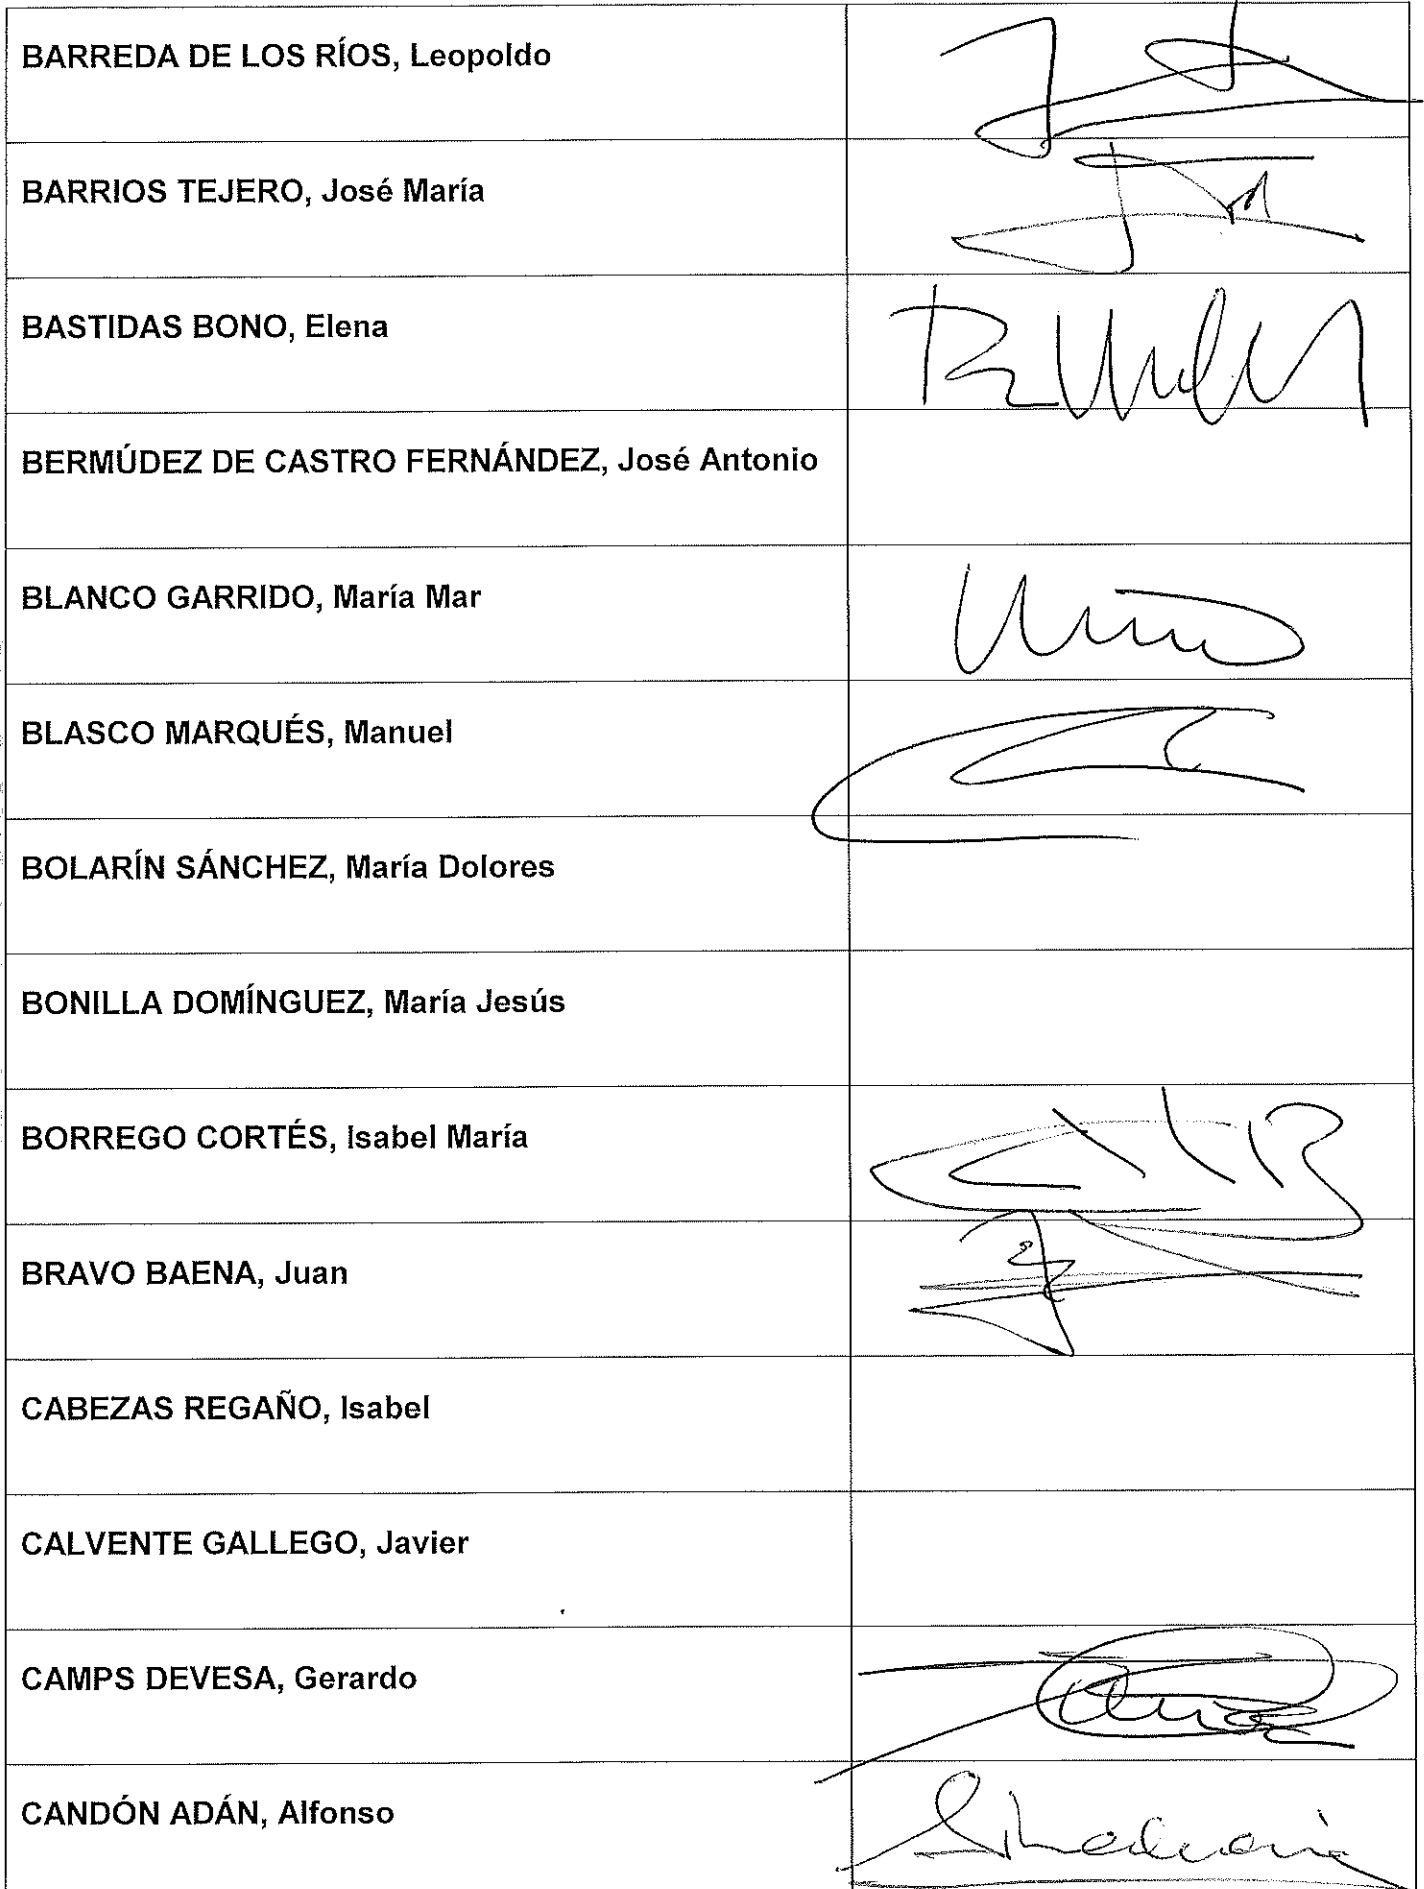 BARREDA DE LOS RÍOS, Leopoldo
BARRIOS TEJERO, José María
BASTIDAS BONO, Elena
BERMÚDEZ DE CASTRO FERNÁNDEZ, José Antonio
BLANCO GARRIDO, María Mar
BLASCO MARQUÉS, Manuel
BOLARÍN SÁNCHEZ, María Dolores
BONILLA DOMÍNGUEZ, María Jesús
BORREGO CORTÉS, Isabel María
BRAVO BAENA, Juan
CABEZAS REGAÑO, Isabel
CALVENTE GALLEGO, Javier
CAMPS DEVESA, Gerardo
CANDÓN ADÁN, Alfonso